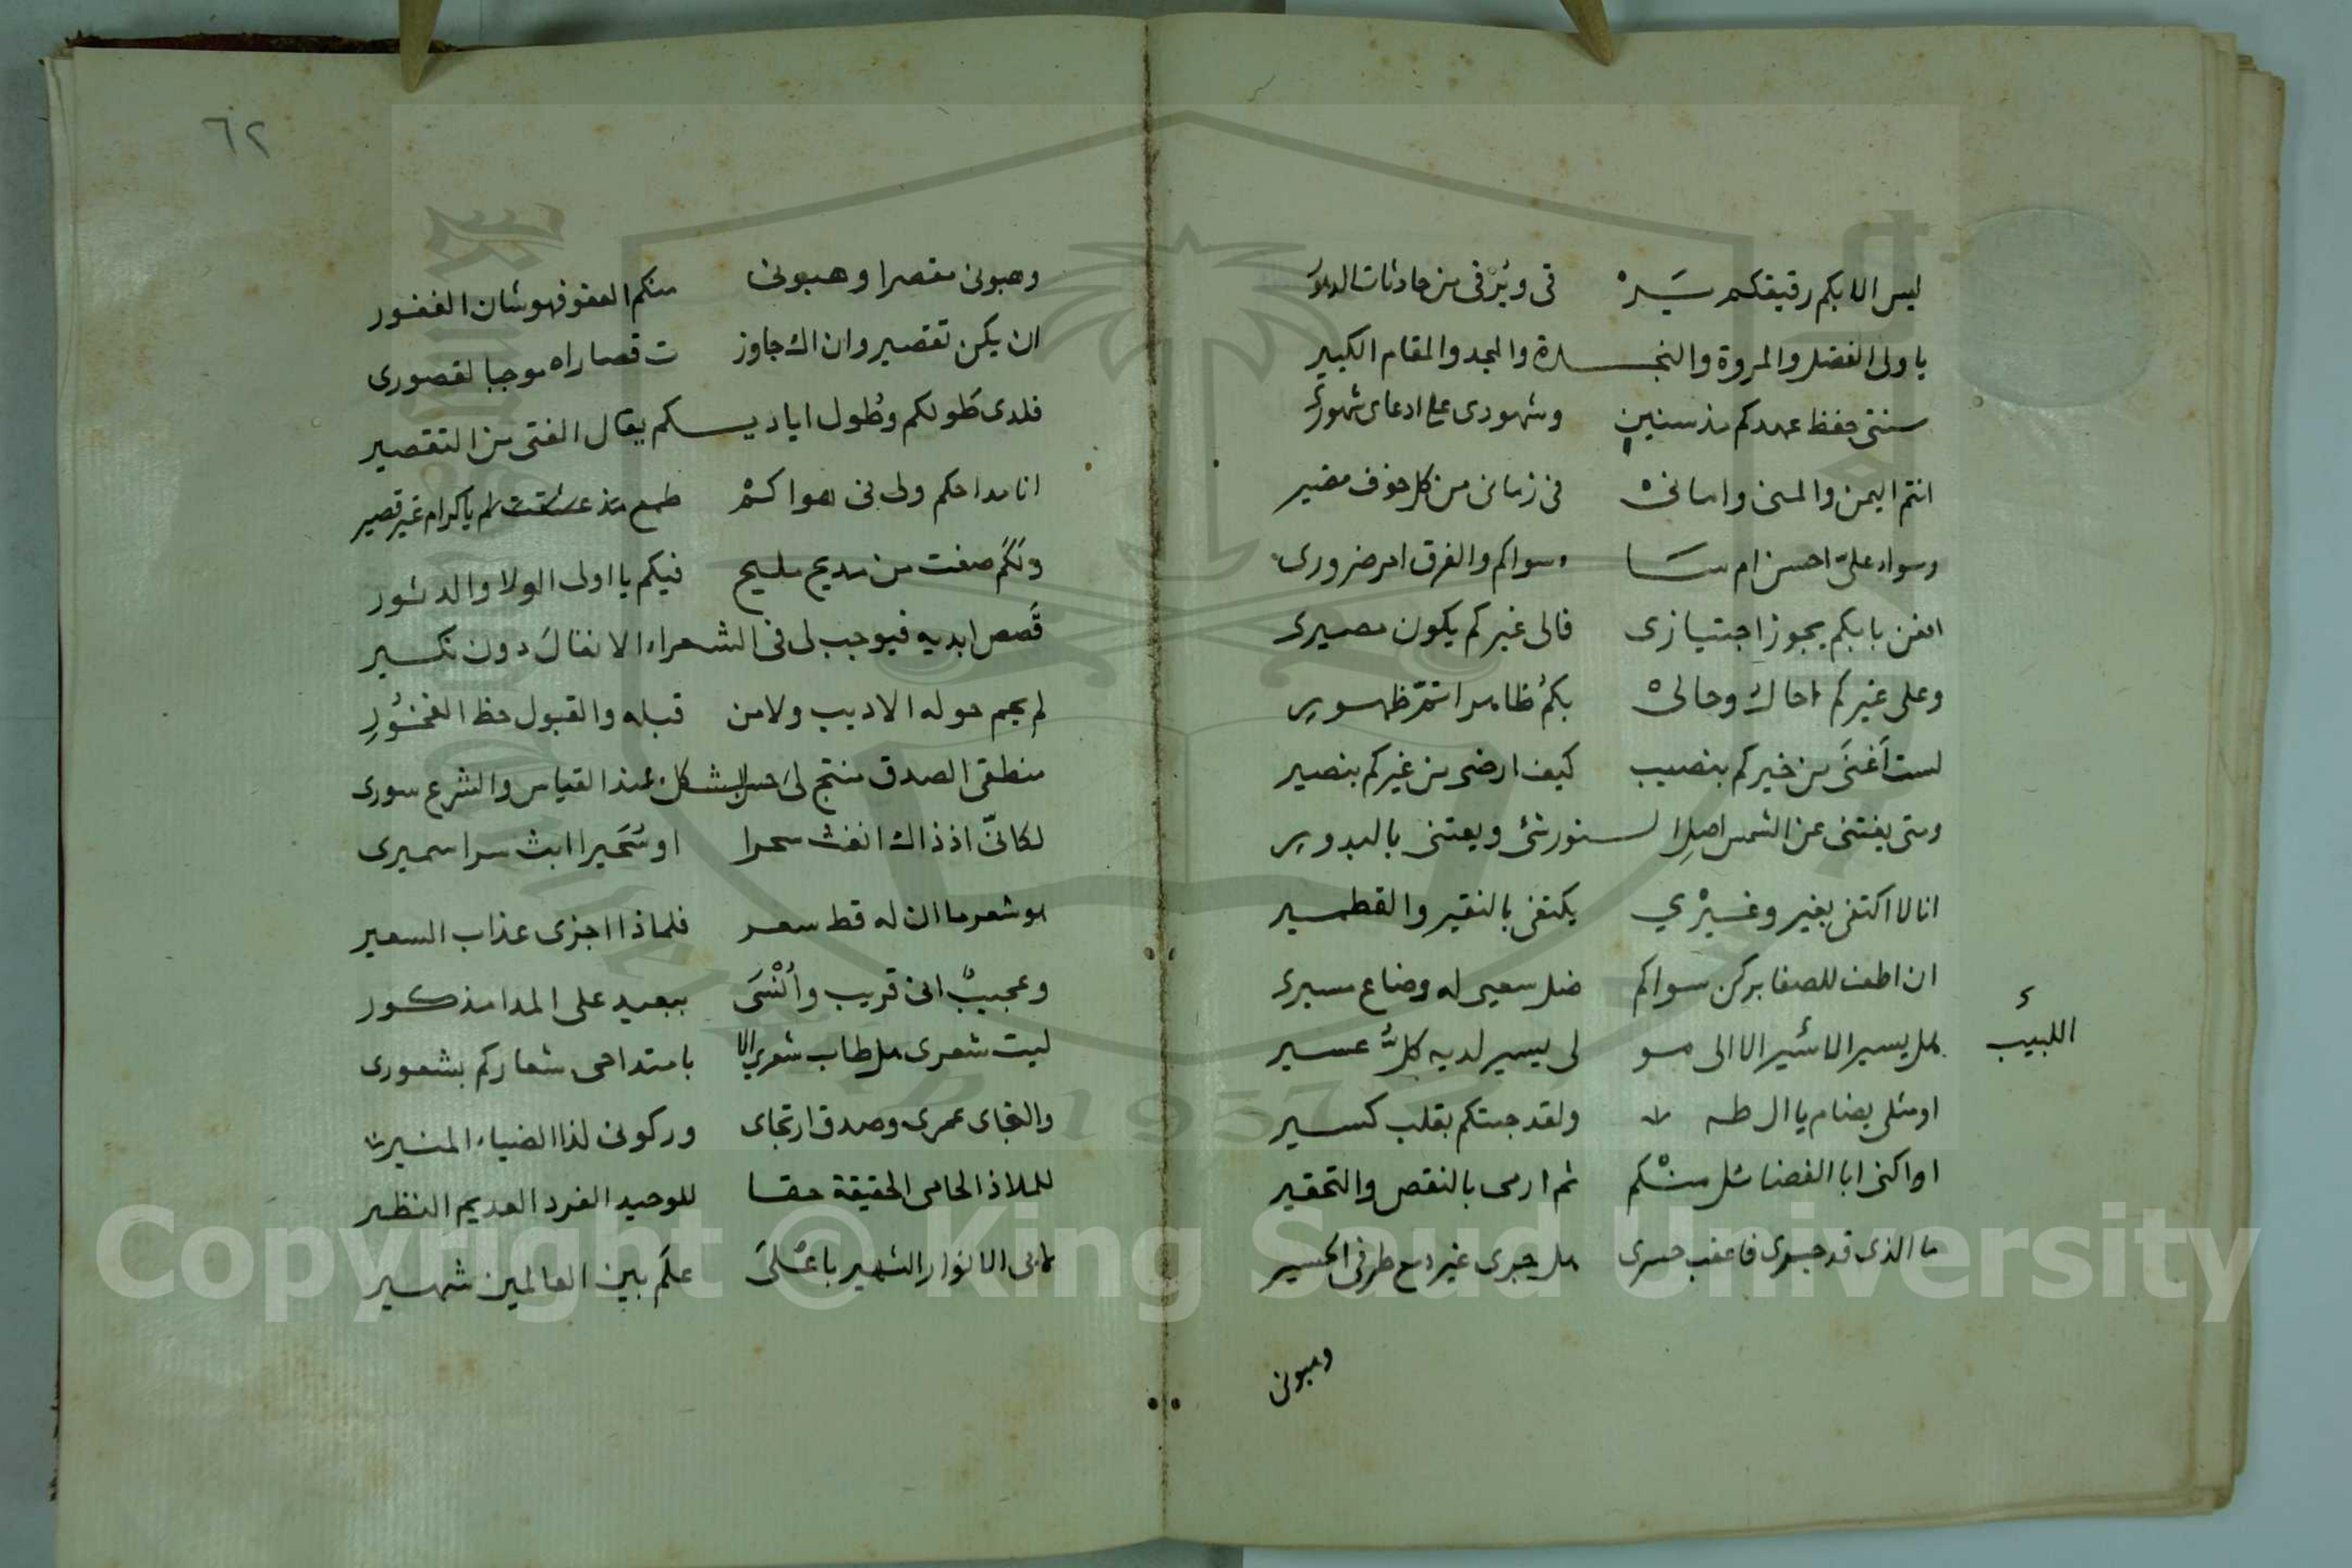 ليس الا بكم رقيقكم يَسْرْ قى ويُرْقى من حادثات الدهور
يا ولى الفضل والمروة والنجدة والمجد والمقام الكبير
سنتى حفظ عهدكم مذ سنين وشهودى على ادعاى شهورى
انتم اليمن والمنى وامانى فى زمانى من كل خوف مضير
وسواء علىّ احسن ام سَا ء سواكم والفرق امر ضرورى
افعن بابكم يجوز اجتيازى فالى غيركم يكون مصيرى
وعلى غيركم احال وحالى بكمُ ظاهرا استمرّ ظهورى
لست اَغنَى من خيركم بنصيب كيف ارضى من غيركم بنصير
ومتى يغتنى عن الشمس اصلا لسنور شئ ويعتنى بالبدور
انا لا اكتفى بغير وغيْري يكتفى بالنقير والقطمير
ان اطف للصفا بركن سواكم ضل سعيى له وضاع مسيرى
اللبيب
هل يسير الا الى مو لى يسير لديه كلُّ عسير
او مثلى يضام يا ال طه ولقد جئتكم بقلب كسير
او اكنى ابا الفضائل منكم ثم ارمى بالنقص والتحقير
ما الذى قد جرى فاعقب حسرى هل جرى غير دمع طرفى الحسير
وهبونى
٦٢
وهبونى مقصرا وهبونى منكم العفو فهو شان الغفور
ان يكن تقصير وان اك جاوز ت قصاراه موجبا لقصورى
فلدى طَولكم وطُول اياديكم يقال الفتى من التقصير
انا مداحكم ولى فى هواكمْ طمع مذ علقت لم ياكرام غير قصير
ولَكَم صغت من مديح مليح فيكم يا اولى الولا والدثور
قَصص ابديه فيوجب لى فى الشعراء الانفالَ دون نكير
لم يحم حوله الاديب ولا من قبله والقبول حظ الفخُورِ
منطقى الصدق منتج لى حسن الشكل عند القياس والشرع سورى
لكانّى اذ ذاك انفث سحرا او سُحَيرا ابث سرا سميرى
هو شعر ما ان له قط سعر فلماذا اجزى عذاب السعير
وعجيبٌ انى قريب واُنْسَى ببعيد على المدا مذكور
ليت شعرى هل طاب شعرى الا بامتداحى شعاركم بشعورى
والتجاى عمرى وصدق ارتجاى وركونى لذا الضياء المنير
للملاذ الحامى الحقيقة حقا للوحيد الفرد العديم النظير
لابى الانوار الشهير باعْلَى علَم بين العالمين شهير
Copyright © King Saud University
1957